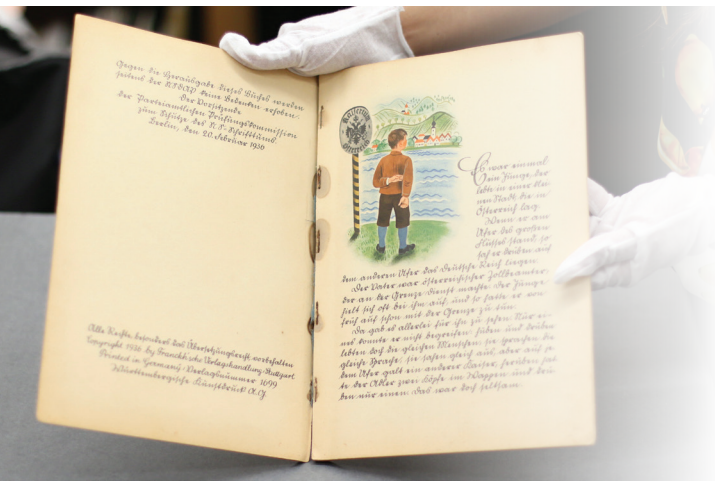 Gegen die Herausgabe dieses Buches werden
seitens der NSDAP keine Bedenken erhoben.
Der Vorsitzende
der Parteiamtlichen Prüfungskommission
zum Schutze des N.S.-Schrifttums.
Berlin, den 20. Februar 1936
Alle Rechte, besonders das Übersetzungsrecht vorbehalten
Copyright 1936 by Franckh'sche Verlagshandlung Stuttgart
Printed in Germany Verlagsnummer 1699
Württembergische Kunstdruck A.G.
Österreich
Es war einmal
ein Junge, der
lebte in einer klei-
nen Stadt, die in
Österreich lag.
Wenn er am
Ufer des großen
Flusses stand, so
sah er drüben auf
dem anderen Ufer das Deutsche Reich liegen.
Der Vater war österreichischer Zollbeamter,
der an der Grenze Dienst machte. Der Junge
hielt sich oft bei ihm auf, und so hatte er von
früh auf schon mit der Grenze zu tun.
Da gab es allerlei für ihn zu sehen. Nur ei-
nes konnte er nicht begreifen: hüben und drüben
lebten doch die gleichen Menschen, sie sprachen die
gleiche Sprache, sie sahen gleich aus, aber auf je-
dem Ufer galt ein anderer Kaiser, herüben hat-
te der Adler zwei Köpfe im Wappen und drü-
ben nur einen. Das war doch seltsam.